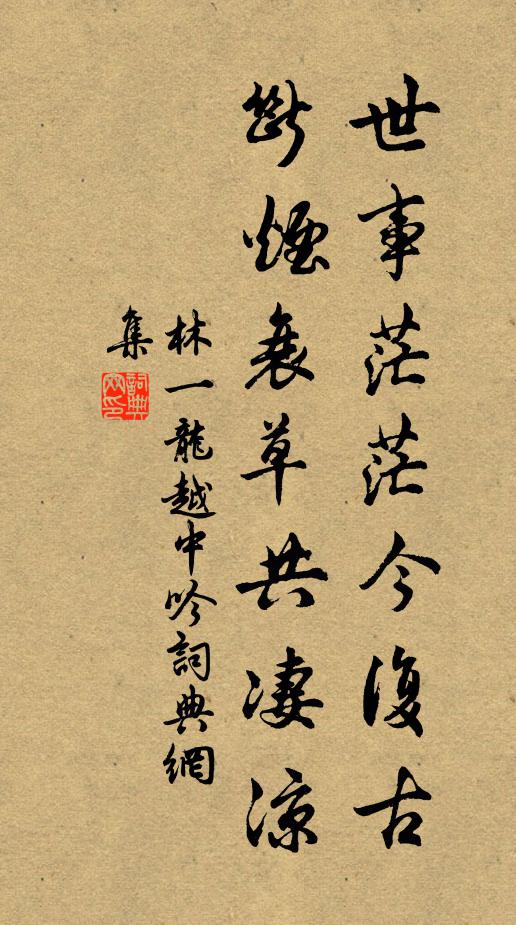 世事茫茫今復古
斷煙衰草共凄涼
林一龍越中吟詞典網
集
詞典網印